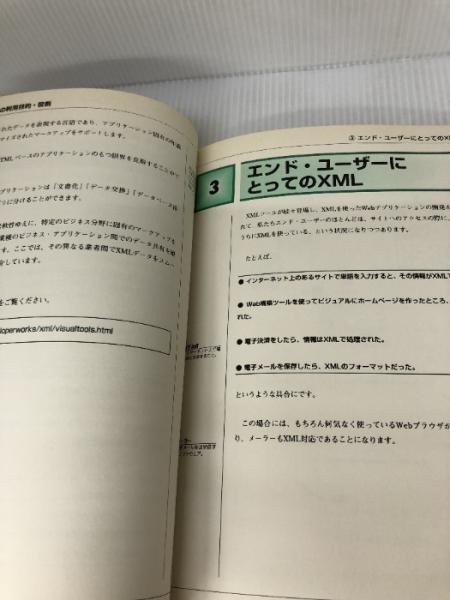 の利用目的・役割
れたデータを表現する言語であり、アプリケーション固有の
マイズされたマークアップをサポートします。
TMLベースのアプリケーションのもつ限界を克服することで
できます。
プリケーションは「文書化」「データ交換」「データベース
に分けることができます。
軟性ゆえに、特定のビジネス分野に固有のマークアップを
業種のビジネス・アプリケーション間でのデータ共有を
す。ここでは、その異なる業者間でXMLデータをスムー
しています。
をご覧ください。
eloperworks/xml/visualtools.html
③ エンド・ユーザーにとってのX
3
エンド・ユーザーに
とってのXML
XMLツールが続々登場し、XMLを使ったWebアプリケーションの開発
れて、私たちエンド・ユーザーのほとんどは、サイトへのアクセスの際に、
うちにXMLを使っている、という状況になりつつあります。
たとえば、
●インターネット上のあるサイトで単語を入力すると、その情報がXMLで
●Web構築ツールを使ってビジュアルにホームページを作ったところ、
れた。
●電子決済をしたら、情報はXMLで処理された。
●電子メールを保存したら、XMLのフォーマットだった。
というような具合にです。
この場合には、もちろん何気なく使っているWebブラウザが
り、メーラーもXML対応であることになります。